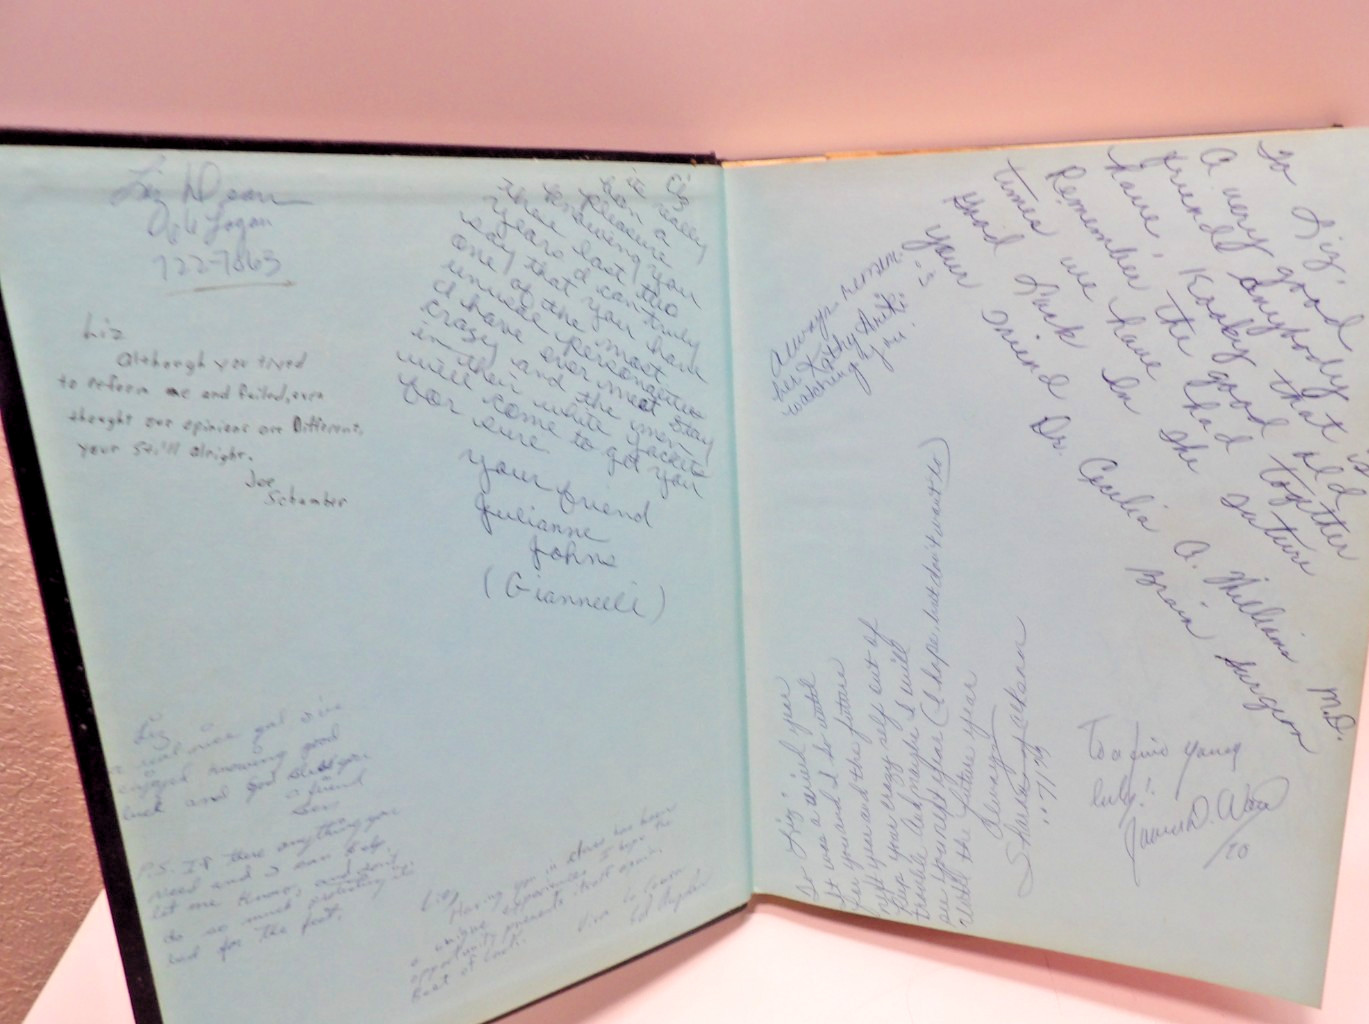 Liz Dean
Logan
722-7863
Liz
Although you tryed
to reform me and failed, even
thought our opinions are Different,
your still alright.
Joe
Schamber
Liz
it
has really
been a
pleasure
knowing you
these last two
years I can truly
say that you have
one of the most
unique personalities
I have ever meet stay
crazy and the men
in their white jackets
will come to get you
for sure
your friend
Julianne
Johns
(Giannelli)
Liz
a real nice gal I've
enjoyed knowing good
luck and god bless you
a friend
P.S. If there anything you
need and I can help
let me know, and don't
do so much protesting it's
bad for the feet.
Liz,
Having you in class has been
a unique experience. I hope the
opportunity presents itself again.
Best of luck.
Viva la
To Liz,
A very good
friend anybody that is
have, Kooky good old
Remember the good
times we have had together
Good luck in the future
your friend Dr. Cecelia A. Williams M.D.
Brain Surgeon
Always remem-
ber Kathy is
watching you.
To Liz,
It was a weird year
for you and the future
keep your crazy self out of
trouble and maybe I will
see you next year (I hope, but don't want to)
Always
To a fine young
lady!
James D. Wood
/70